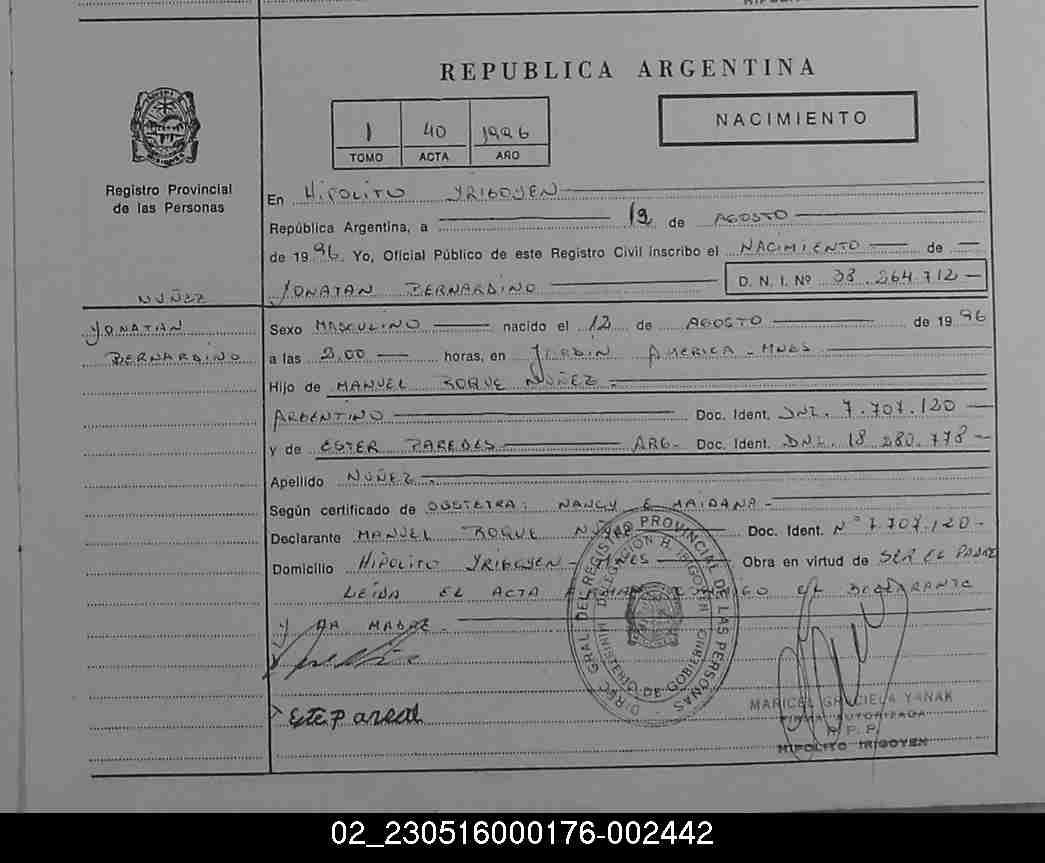 REPUBLICA ARGENTINA
NACIMIENTO
1 40 1996
TOMO ACTA AÑO
Registro Provincial
de las Personas
En HIPOLITO YRIGOYEN
República Argentina, a 19 de AGOSTO
de 1996. Yo, Oficial Público de este Registro Civil inscribo el NACIMIENTO de
YONATAN BERNARDINO D. N. I. Nº 38.264.712
NUÑEZ
YONATAN
BERNARDINO
Sexo MASCULINO nacido el 12 de AGOSTO de 1996
a las 2.00 horas, en JARDIN AMERICA - MNES
Hijo de MANUEL ROQUE NUÑEZ
ARGENTINO Doc. Ident. DNI. 7.707.120
y de ESTER PAREDES ARG- Doc. Ident. DNI. 18.280.778
Apellido NUÑEZ
Según certificado de OBSTETRA: NANCY E MAIDANA
Declarante MANUEL ROQUE NUÑEZ Doc. Ident. Nº 7.707.120
Domicilio HIPOLITO YRIGOYEN - MNES Obra en virtud de SER EL PADRE
LEIDA EL ACTA FIRMAN CONMIGO EL DECLARANTE
Y LA MADRE
DIREC. GRAL. DEL REGISTRO PROVINCIAL DE LAS PERSONAS
MINISTERIO DE GOBIERNO
DELEGACION H. IRIGOYEN
MARICEL GRACIELA YANAK
FIRMA AUTORIZADA
R. P. P.
HIPOLITO IRIGOYEN
02_230516000176-002442